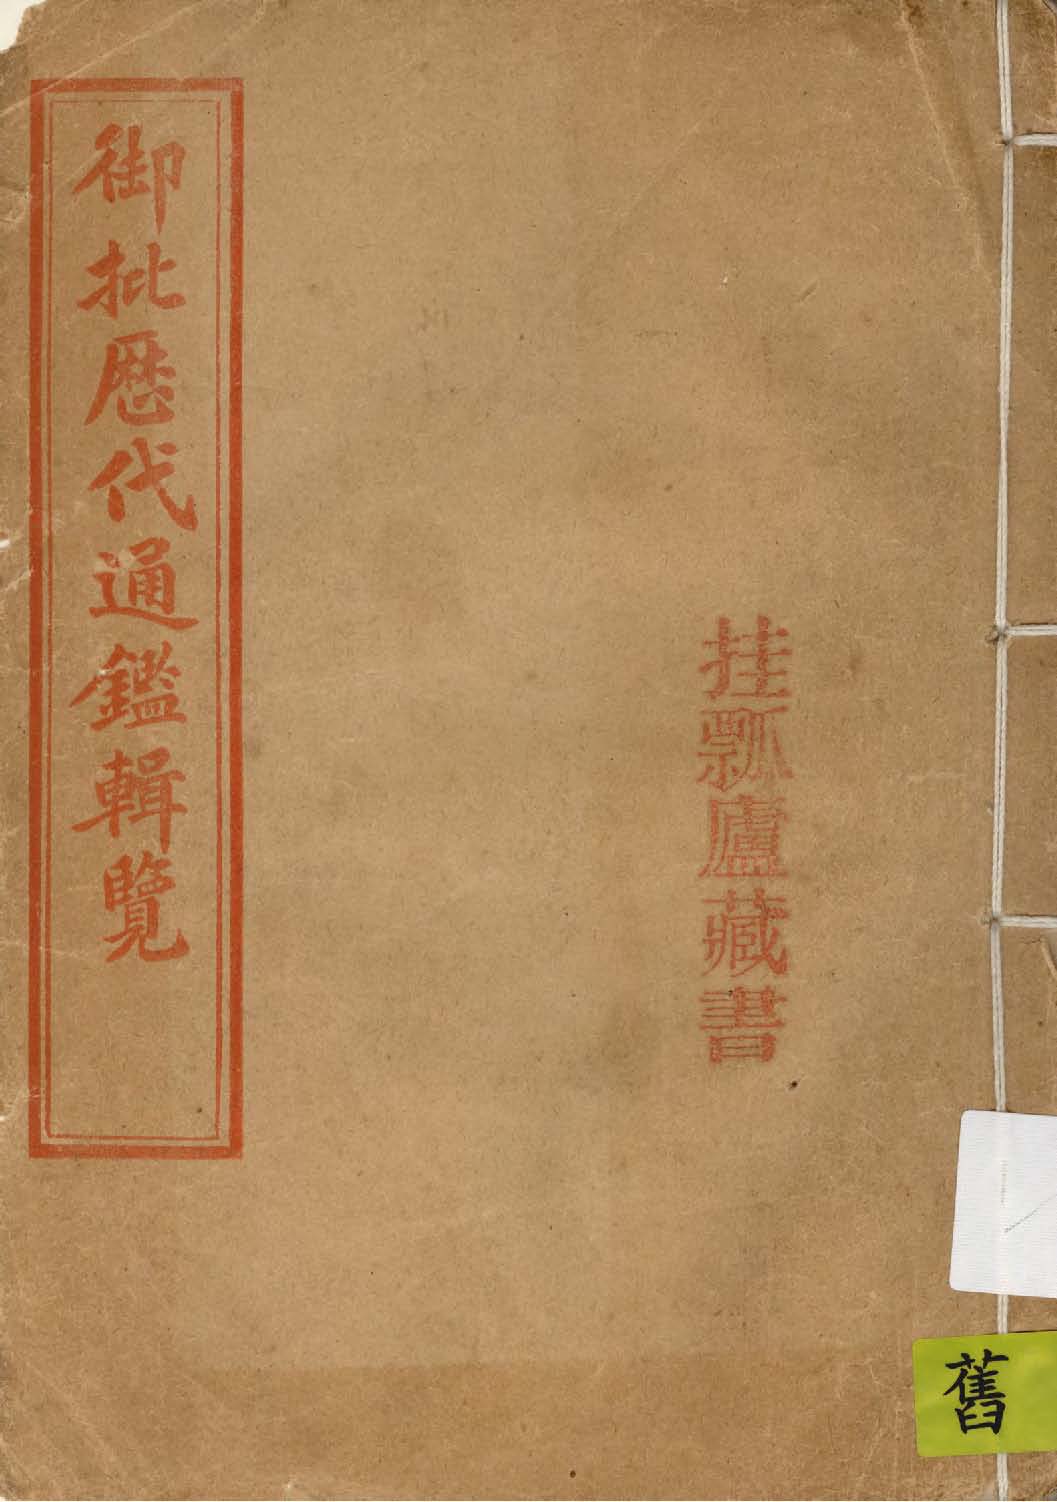 挂瓢廬藏書
御批歷代通鑑輯覽
舊